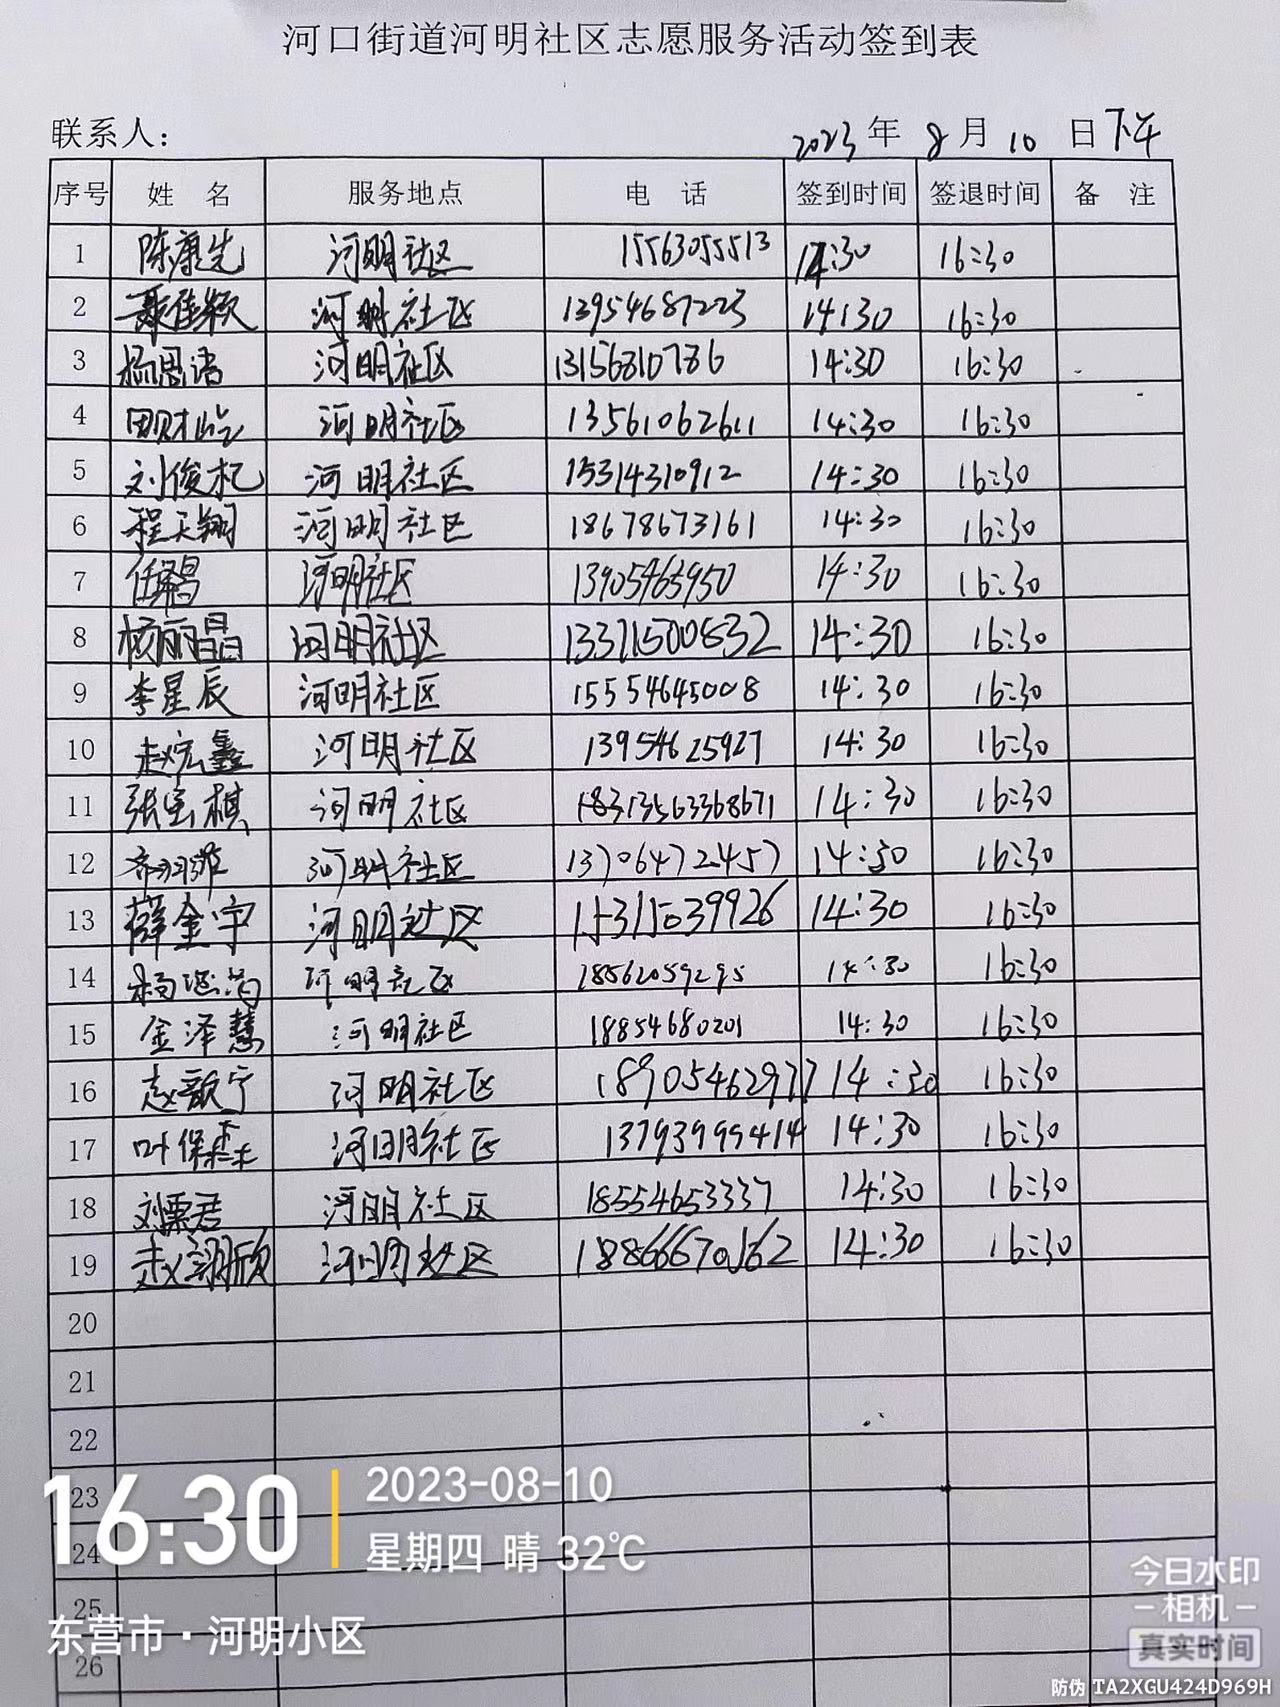 河口街道河明社区志愿服务活动签到表
联系人： 2023年8月10日下午
序号 姓名 服务地点 电话 签到时间 签退时间 备注
1 陈康先 河明社区 15563055513 14:30 16:30
2 聂佳颖 河明社区 13954687223 14:30 16:30
3 杨思诺 河明社区 13156810786 14:30 16:30
4 河明社区 13561062611 14:30 16:30
5 刘俊杞 河明社区 15314310912 14:30 16:30
6 程天翔 河明社区 18678673161 14:30 16:30
7 河明社区 13905463950 14:30 16:30
8 杨丽晶 河明社区 13371500832 14:30 16:30
9 李星辰 河明社区 15554645008 14:30 16:30
10 赵宏鑫 河明社区 13954625927 14:30 16:30
11 张宝棋 河明社区 14:30 16:30
12 齐羽菲 河明社区 13706472457 14:50 16:30
13 薛金宇 河明社区 15311539926 14:30 16:30
14 河明社区 18562059295 14:30 16:30
15 金泽慧 河明社区 18854680201 14:30 16:30
16 赵歆宁 河明社区 18905462977 14:30 16:30
17 叶保森 河明社区 13793999414 14:30 16:30
18 刘栗君 河明社区 18554653337 14:30 16:30
19 赵翊欣 河明社区 14:30 16:30
20
21
22
23
24
25
26
16:30
2023-08-10
星期四 晴 32℃
东营市·河明小区
今日水印
-相机-
真实时间
防伪 TA2XGU424D969H